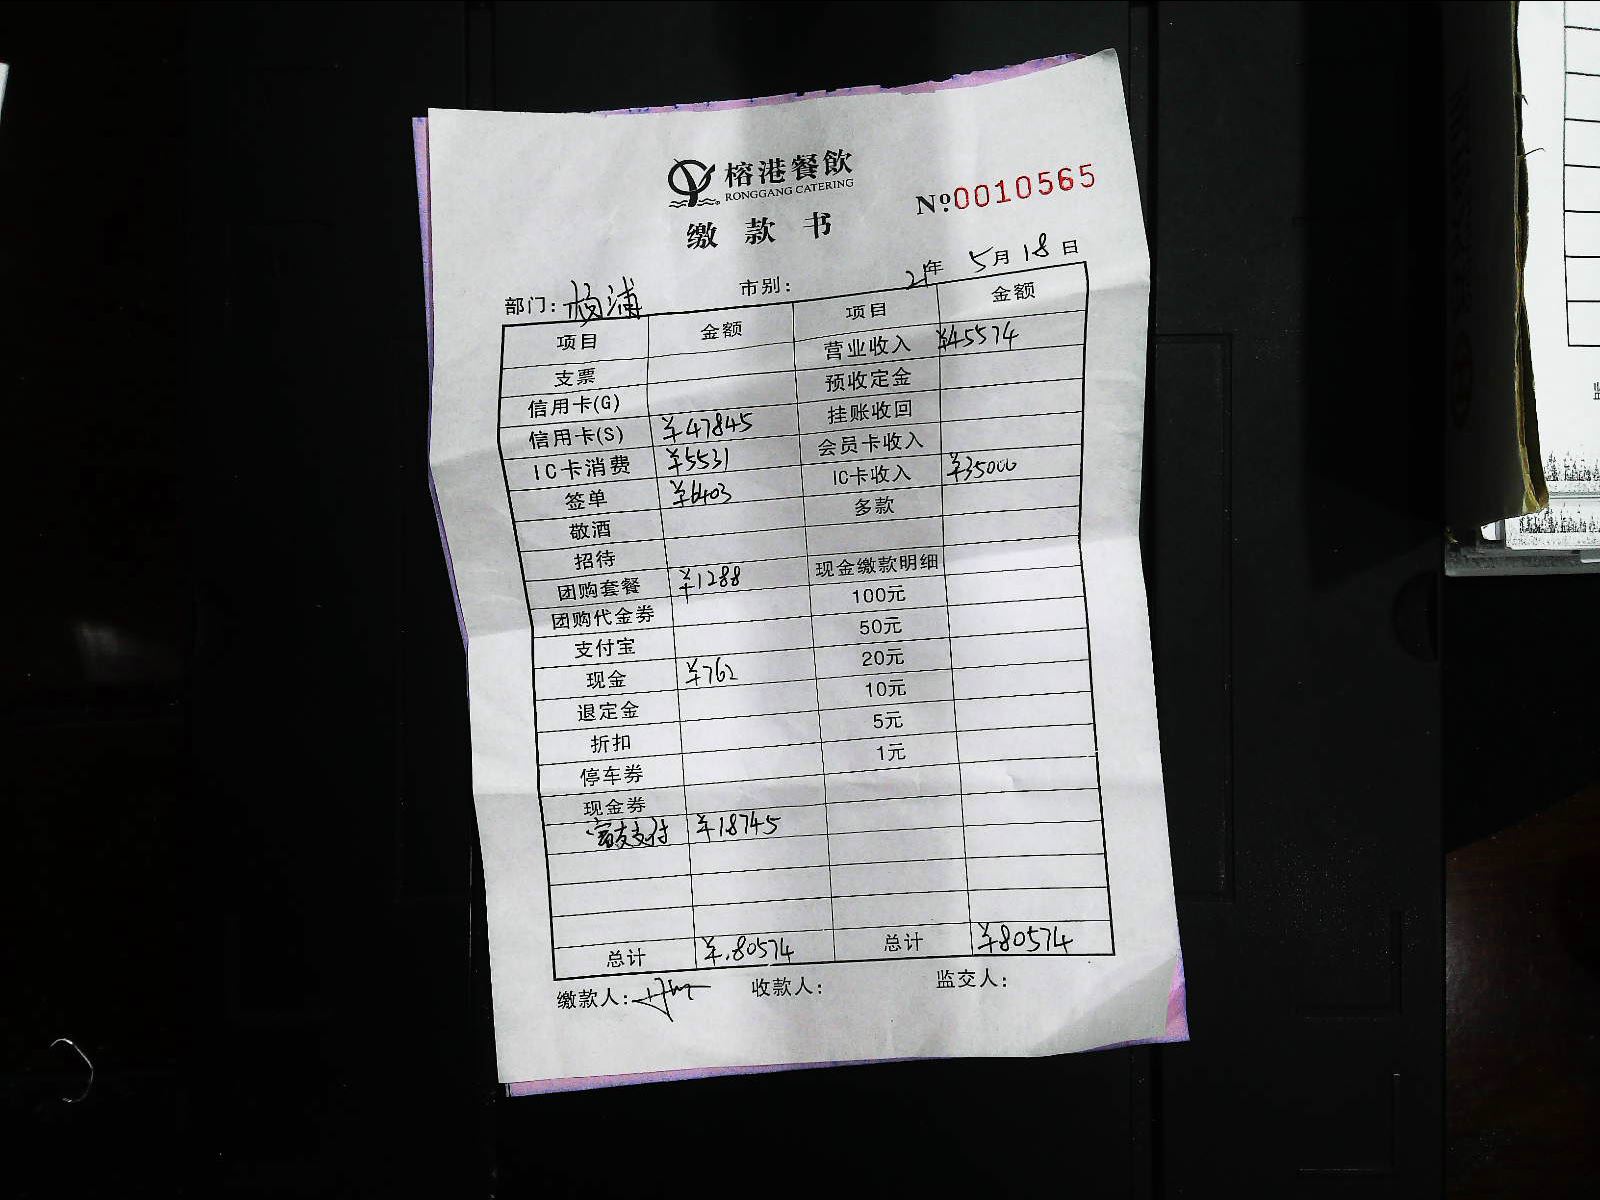 榕港餐飲
RONGGANG CATERING
缴款书
№0010565
部门：杨浦 市别： 21年 5月 18日
项目 金额 项目 金额
支票 营业收入 ¥45574
信用卡(G) 预收定金
信用卡(S) ¥47845 挂账收回
IC卡消费 ¥5531 会员卡收入
签单 ¥6403 IC卡收入 ¥35000
敬酒 多款
招待
团购套餐 ¥1288 现金缴款明细
团购代金券 100元
支付宝 50元
现金 ¥762 20元
退定金 10元
折扣 5元
停车券 1元
现金券
支付 ¥18745
总计 ¥.80574 总计 ¥80574
缴款人： 收款人： 监交人：